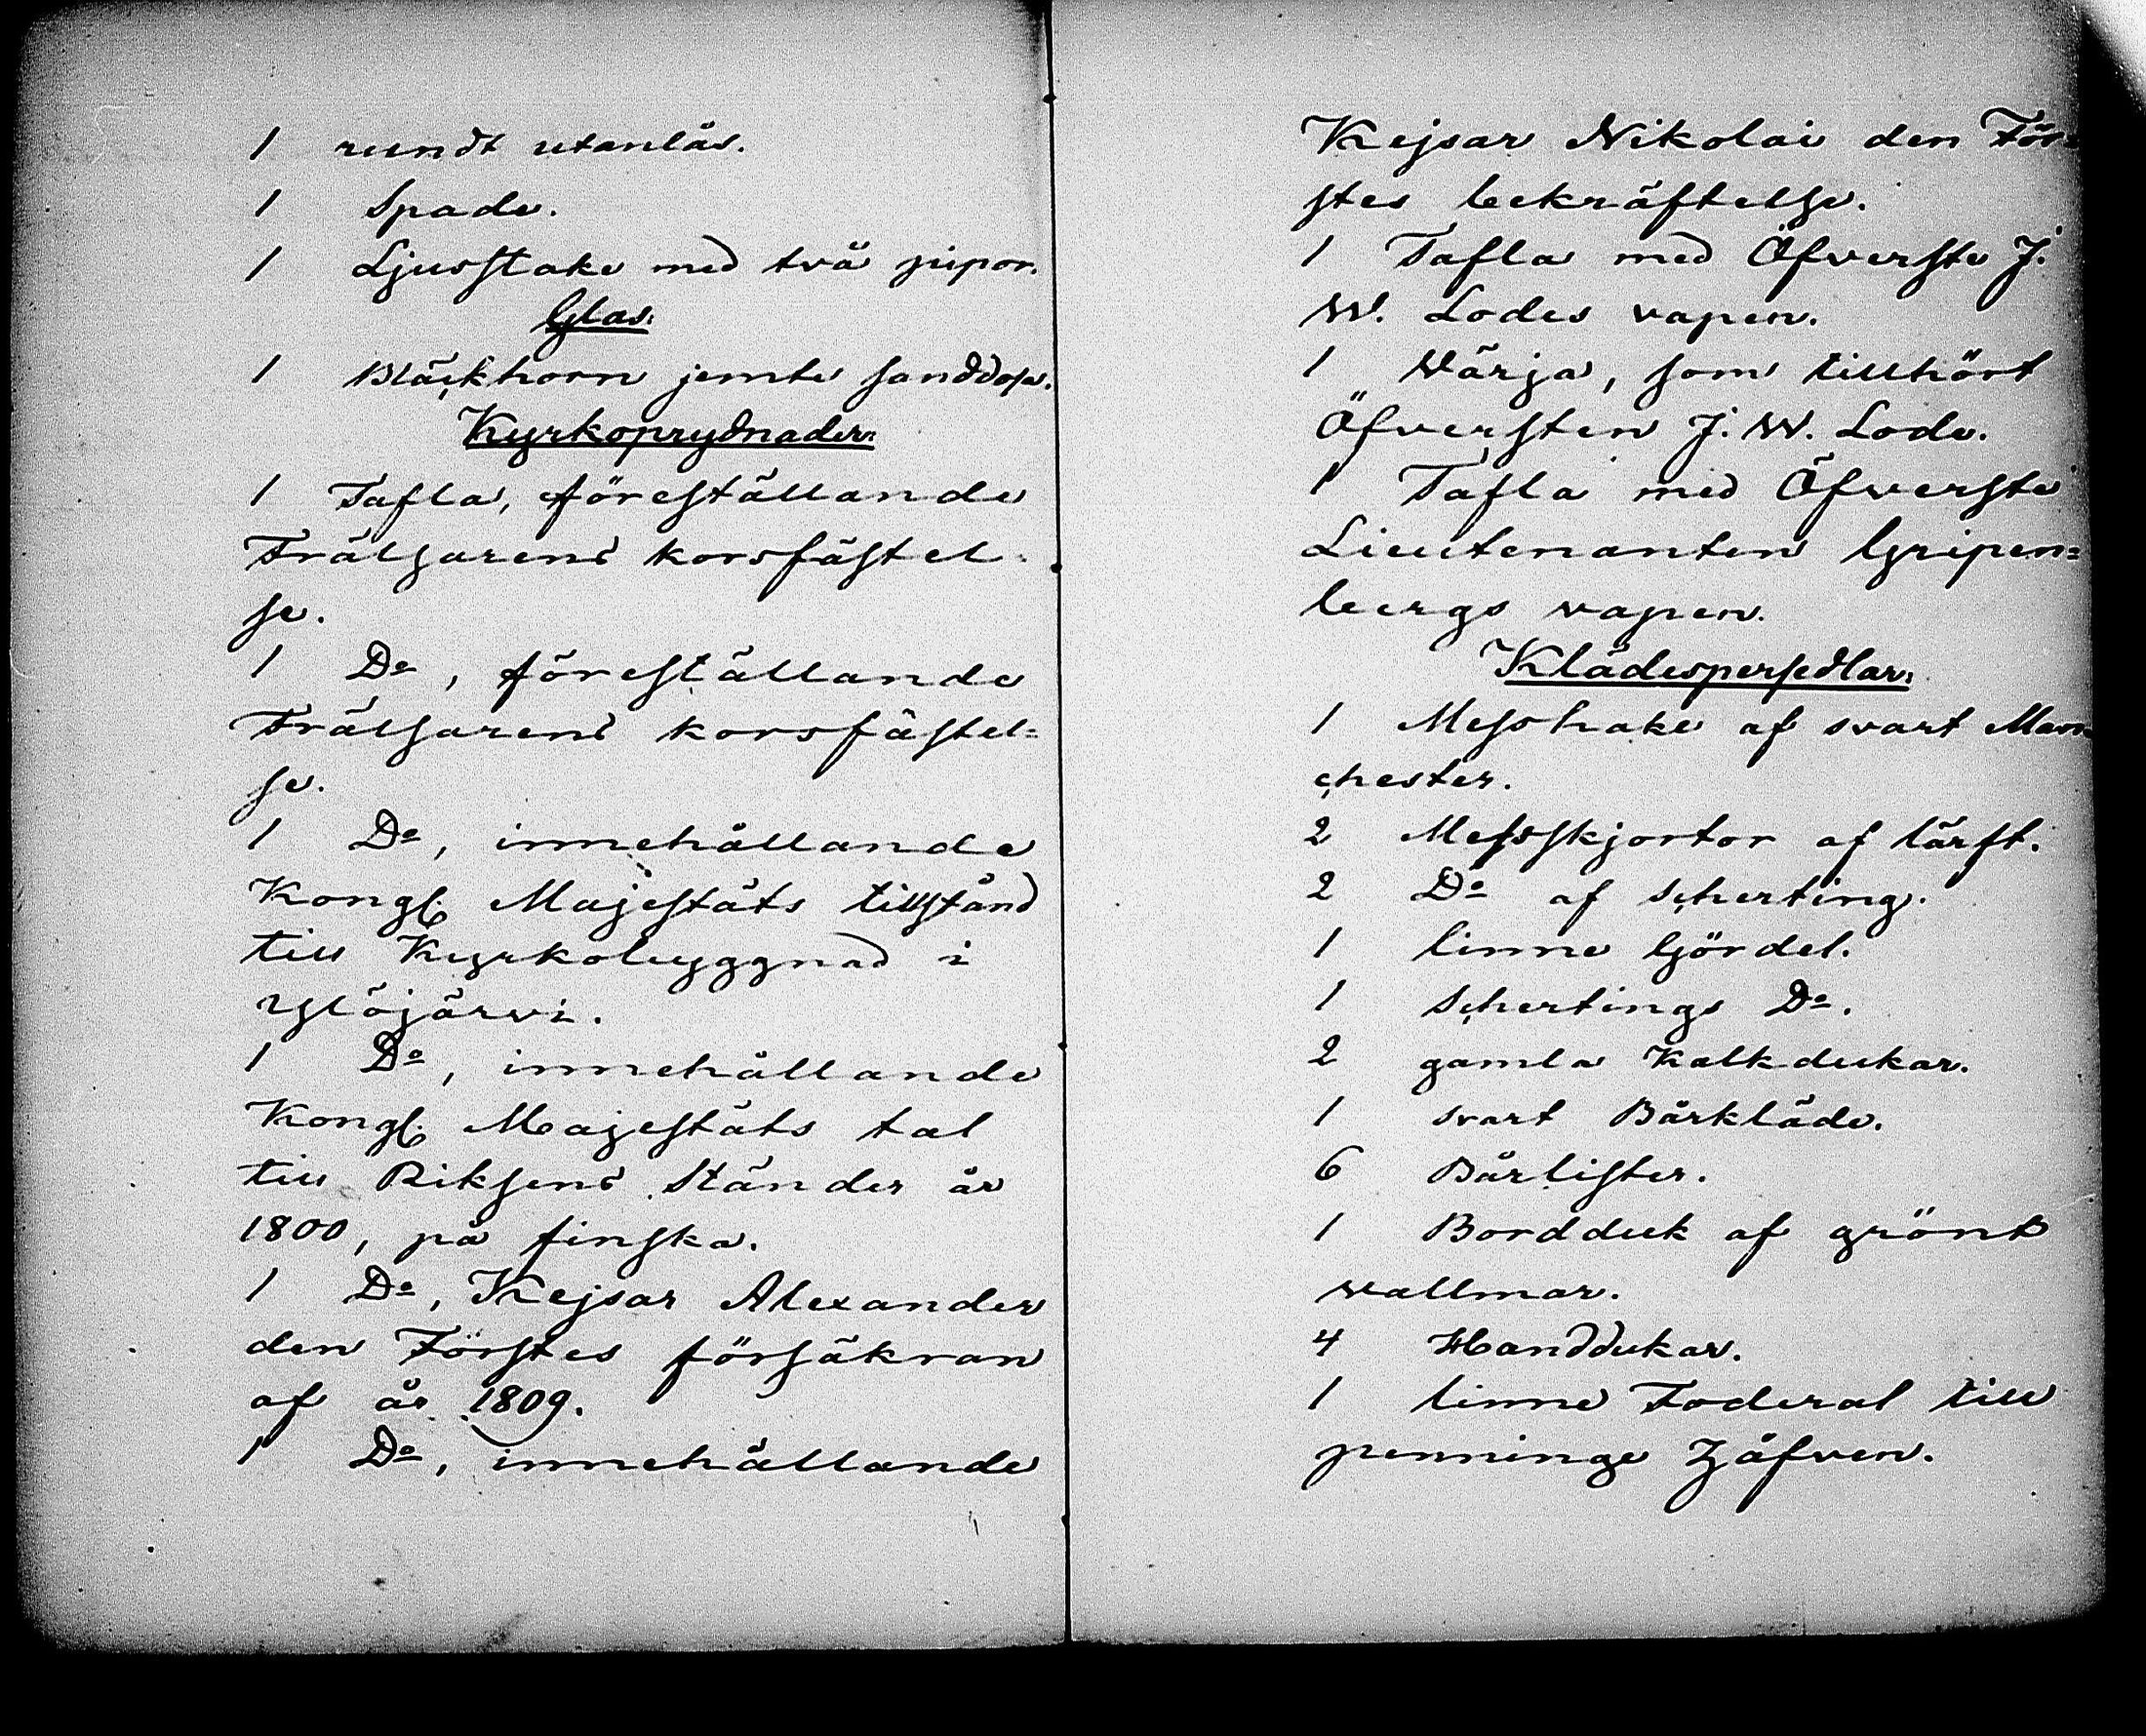 1 rundt utanlås.
1 Spade.
1 Ljusstake med två pipor.
Glas.
1 Bläckhorn jemte sanddosa.
Kyrkoprydnader.
1 Tafla, föreställande
Frälsarens korsfästel-
se.
1 Do, föreställande
Frälsarens korsfästel=
se.
1 Do, innehållande
Kongl. Majestäts tillstånd
till Kyrkobyggnad i
Ylöjärvi.
1 Do, innehållande
Kongl. Majestäts tal
till Riksens Ständer år
1800, på finska.
1 Do, Kejsar Alexander
den Förstes försäkran
af år 1809.
1 Do, innehållande
Kejsar Nikolai den För=
stes bekräftelse.
1 Tafla med Öfverste J.
W. Lodes vapen.
1 Wärja, som tillhört
Öfversten J. W. Lode.
1 Tafla med Öfverste
Lieutenanten Gripen=
bergs vapen.
Klädespersedlar.
1 Messhake af svart Man=
chester.
2 Messskjortor af lärft.
2 Do af scherting.
1 linne Gördel.
1 schertings Do.
2 gamla Kalkdukar.
1 svart Bårkläde.
6 Bårlister.
1 Bordduk af grönt
wallmar.
4 Handdukar.
1 linne Foderal till
penninge Håfven.